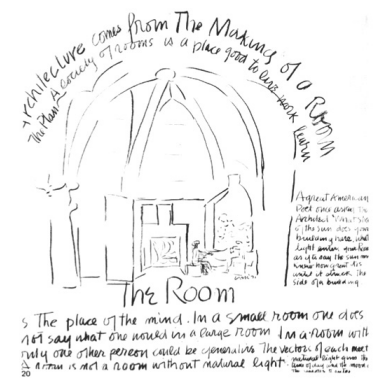 Architecture comes from The Making of a Room
The Plan A society of rooms is a place good to live work learn
A great American
Poet once asked the
Architect
of the sun does your
building have, what
light enters your room
as if to say the sun never
knew how great it is
until it struck the
side of a building.
The Room
Is The place of the mind. In a small room one does
not say what one would in a large room In a room with
only one other person could be generative The vectors of each meet
A room is not a room without natural light.
natural light gives the
time of day and
20